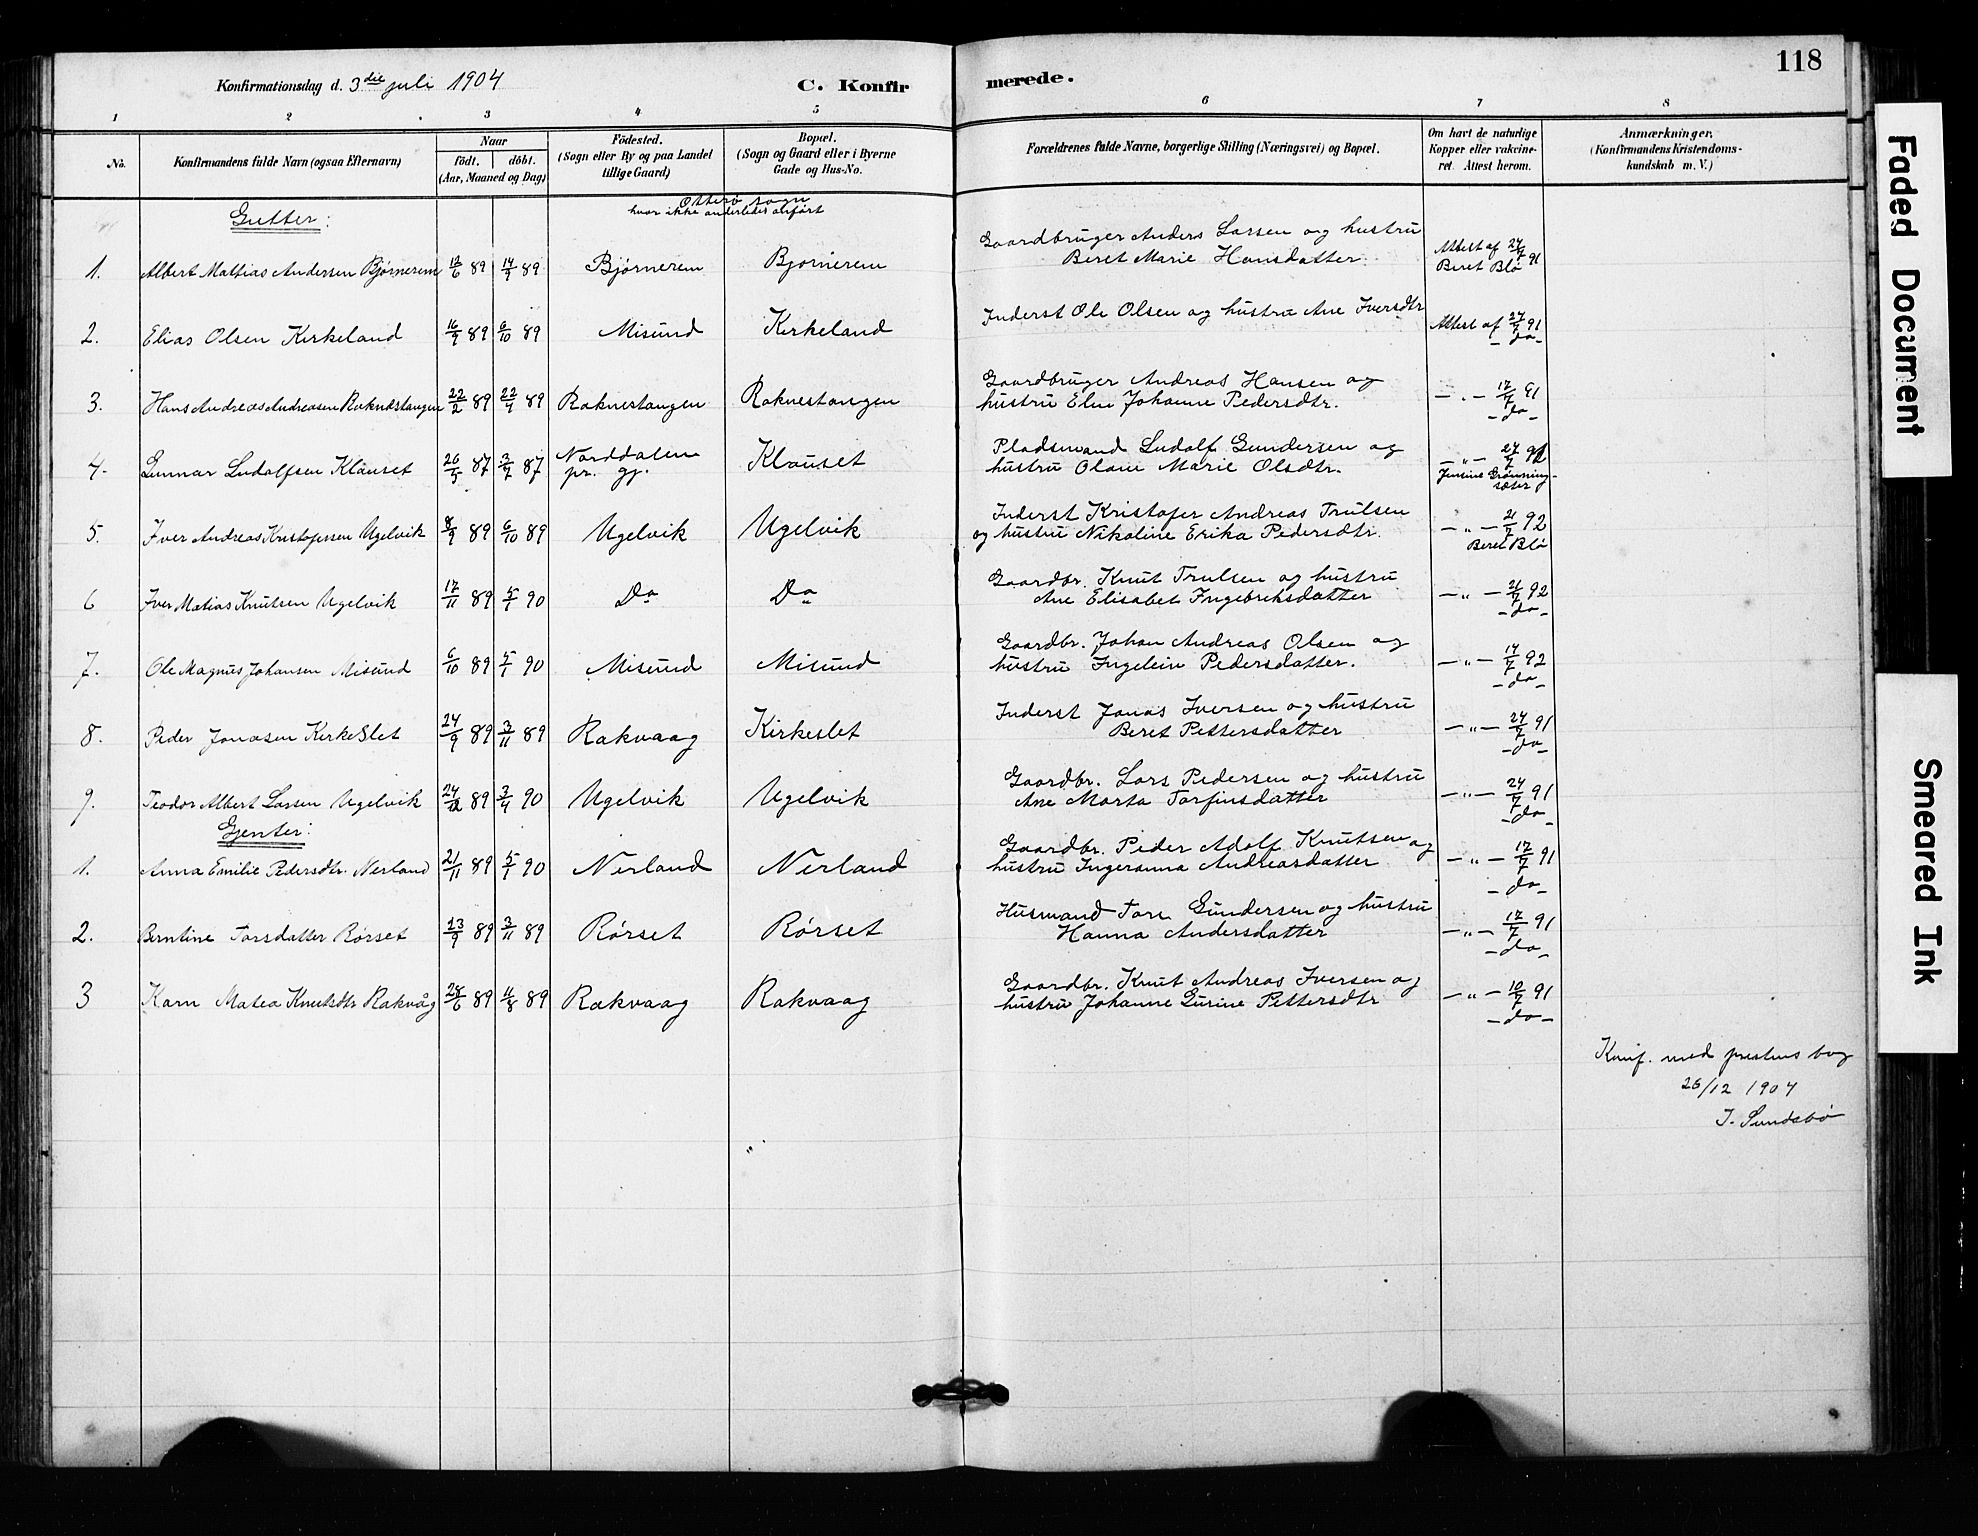 118
Konfirmationsdag d. 3die juli 1904
C. Konfirmerede.
1 2 3 4 5 6 7 8
No.
Konfirmandens fulde Navn (ogsaa Efternavn)
Naar
födt. döbt.
(Aar, Maaned og Dag)
Födested.
(Sogn eller By og paa Landet
tillige Gaard)
Bopæl.
(Sogn og Gaard eller i Byerne
Gade og Hus-No.
Forældrenes fulde Navne, borgerlige Stilling (Næringsvei) og Bopæl.
Om havt de naturlige
Kopper eller vakcine-
ret. Attest herom.
Anmærkninger.
(Konfirmandens Kristendoms-
kundskab m. V.)
Gutter:
Otterø sogn
hvor ikke anderledes anført
1. Albert Mathias Andersen Bjørnerem 12/6 89 14/9 89 Bjørnerem Bjørnerem
Gaardbruger Anders Larsen og hustru
Beret Marie Hansdatter
Attest af 24/7 91
Beret Blø
2. Elias Olsen Kirkeland 16/9 89 6/10 89 Misund Kirkeland
Inderst Ole Olsen og hustru Ane Iversdtr
Attest af 24/7 91
- do -
3. Hans Andreas Andreasen Raknestangen 22/2 89 22/4 89 Raknestangen Raknestangen
Gaardbruger Andreas Hansen og
hustru Elen Johanne Pedersdtr.
- „ - 17/7 91
- do -
4. Gunnar Ludolfsen Klauset 26/5 87 3/7 87 Norddalen
pr. gj. Klauset
Pladsmand Ludolf Gundersen og
hustru Olane Marie Olsdtr.
- „ - 27/7 91
Jensine Grønning-
sæter
5. Iver Andreas Kristofersen Ugelvik 8/9 89 6/10 89 Ugelvik Ugelvik
Inderst Kristofer Andreas Trulsen
og hustru Nikoline Erika Pedersdtr.
- „ - 21/7 92
Beret Blø
6 Iver Matias Knutsen Ugelvik 17/11 89 5/1 90 Do Do
Gaardbr. Knut Trulsen og hustru
Ane Elisabet Ingebriktsdatter
- „ - 21/7 92
- do -
7. Ole Magnus Johansen Misund 6/10 89 5/1 90 Misund Misund
Gaardbr. Johan Andreas Olsen og
hustru Ingelein Pedersdatter.
- „ - 14/7 92
- do -
8. Peder Jonasen Kirkeslet 24/9 89 3/11 89 Rakvaag Kirkeslet
Inderst Jonas Iversen og hustru
Beret Pettersdatter
- „ - 24/7 91
- do -
9. Teodor Albert Larsen Ugelvik 24/12 89 3/4 90 Ugelvik Ugelvik
Gaardbr. Lars Pedersen og hustru
Ane Marta Torfinsdatter
- „ - 24/7 91
- do -
Gjenter:
1. Anna Emilie Pedersdtr. Nerland 21/11 89 5/1 90 Nerland Nerland
Gaardbr. Peder Adolf Knutsen og
hustru Ingeranna Andreasdatter
- „ - 17/7 91
- do -
2. Berntine Torsdatter Rørset 23/9 89 3/11 89 Rørset Rørset
Husmand Tore Gundersen og hustru
Hanna Andersdatter
- „ - 17/7 91
- do -
3 Karn Matea Knutsdtr Rakvåg 28/6 89 11/8 89 Rakvaag Rakvaag
Gaardbr. Knut Andreas Iversen og
hustru Johanne Gurine Pettersdtr
- „ - 10/7 91
- do -
Konf. med prestens bog
26/12 1904
J. Sundsbø
Faded Document
Smeared Ink